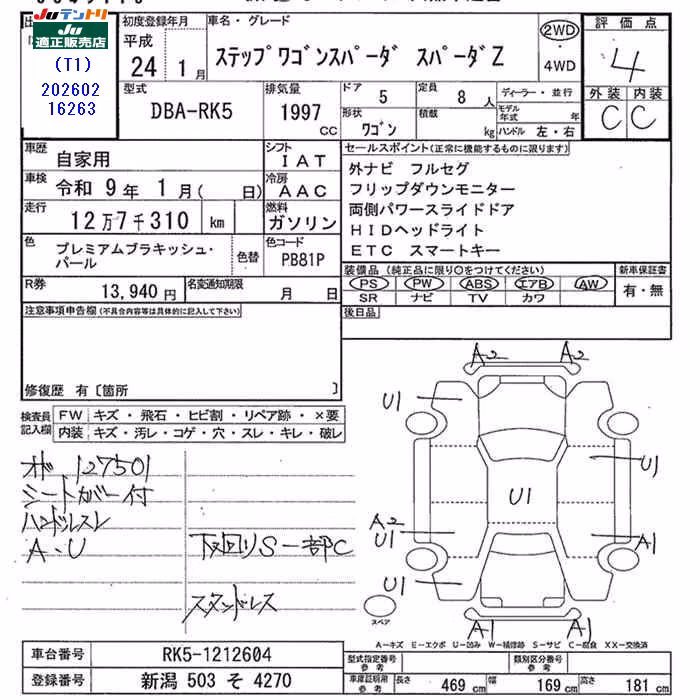 Ju テントリ
Ju適正販売店
(T1)
202602
16263
初度登録年月
平成
24 1月
車名・グレード
ステップワゴンスパーダ スパーダZ
2WD
・
4WD
評価点
4
型式
DBA-RK5
排気量
1997
CC
ドア
5
定員
8人
ディーラー・並行
形状
ワゴン
積載
kg
モデル年式 年
ハンドル 左・右
外装 内装
C C
車歴
自家用
シフト
IAT
車検
令和 9年 1月( 日)
冷房
AAC
走行
12万7千310 km
燃料
ガソリン
色
プレミアムブラキッシュ・パール
色替
色コード
PB81P
R券
13,940円
名変通知期限
月 日
セールスポイント(正常に機能するものに限ります)
外ナビ フルセグ
フリップダウンモニター
両側パワースライドドア
HIDヘッドライト
ETC スマートキー
装備品(純正品に限り○をつけてください)
PS PW ABS エアB AW
SR ナビ TV カワ
新車保証書
有・無
後日品
注意事項申告欄(不具合内容等は具体的に記入して下さい)
修復歴 有〔箇所 〕
検査員記入欄
FW キズ・飛石・ヒビ割・リペア跡・×要
内装 キズ・汚レ・コゲ・穴・スレ・キレ・破レ
オド 127501
シートカバー付
ハンドルスレ
A・U
下回りS一部C
スタッドレス
A2 A2
U1
U1
U1
A2
U1
A1
U1
A1 A1
スペア
A-キズ E-エクボ U-凹み W-補修跡 S-サビ C-腐食 XX-交換済
車台番号
RK5-1212604
登録番号
新潟 503 そ 4270
型式指定番号
参考
類別区分番号
参考
車庫証明用
参考
長さ 469 cm 幅 169 cm 高さ 181 cm